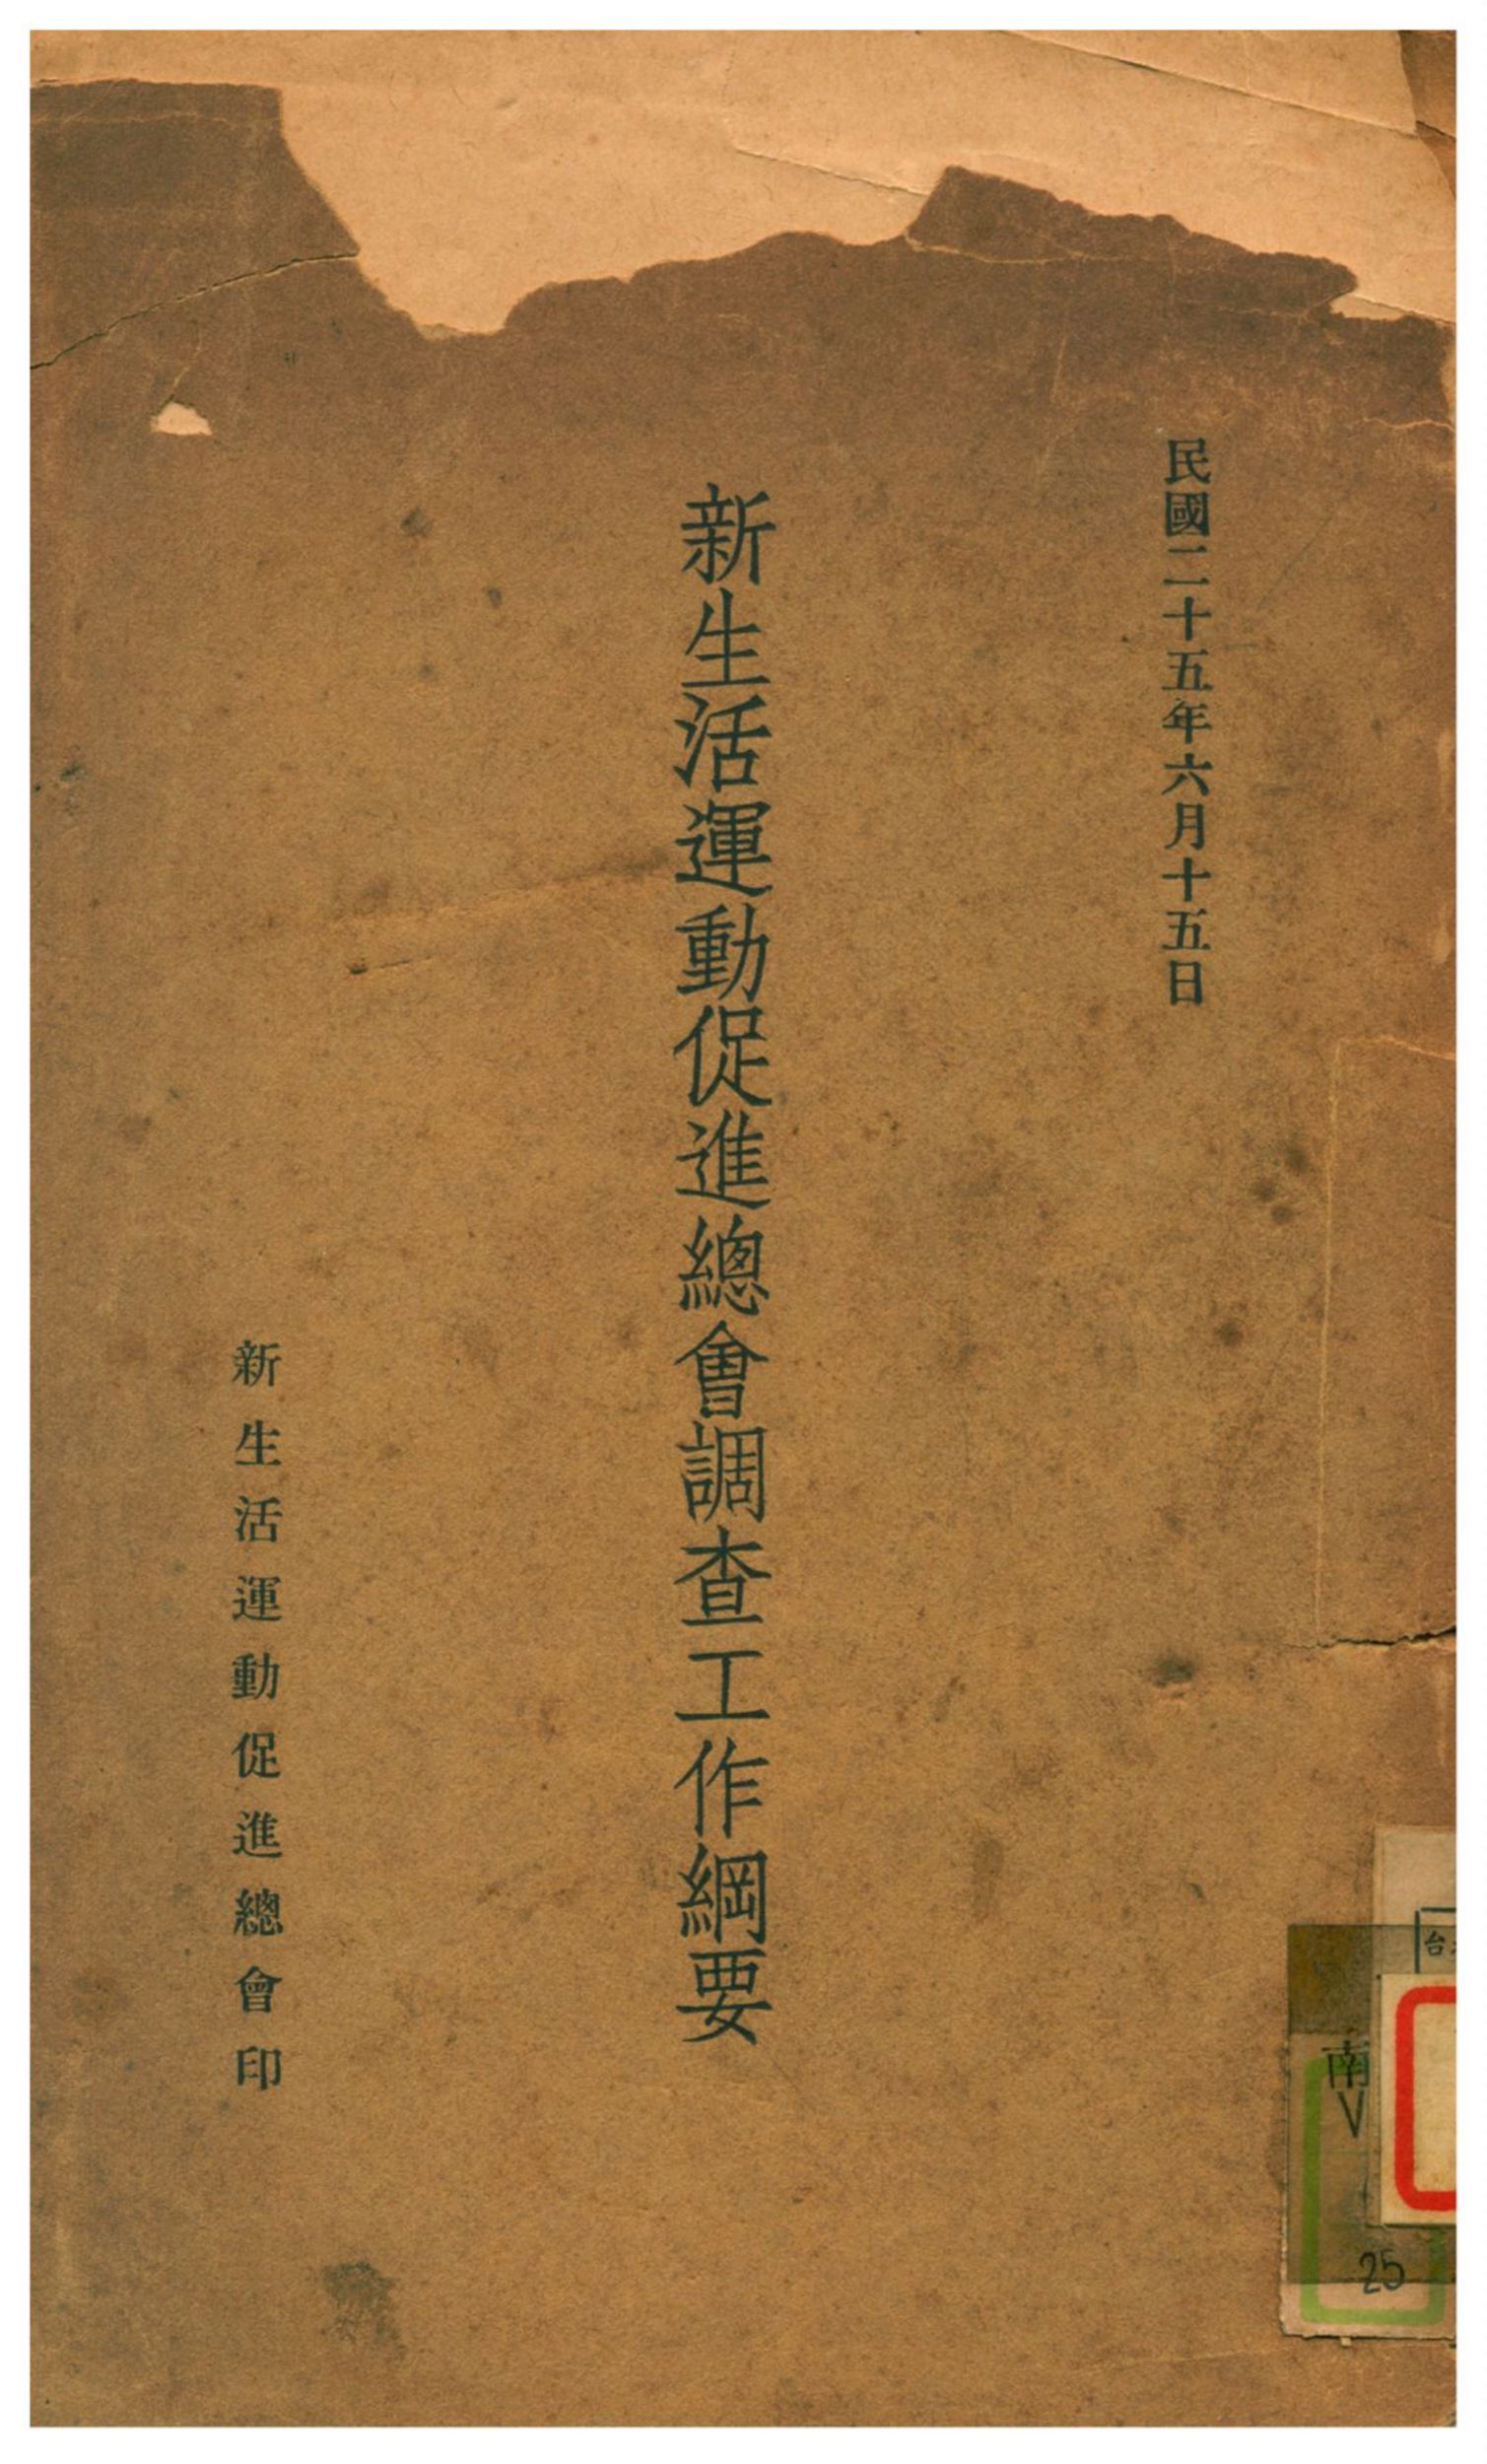 民國二十五年六月十五日
新生活運動促進總會調查工作綱要
新生活運動促進總會印
台
南
V
25